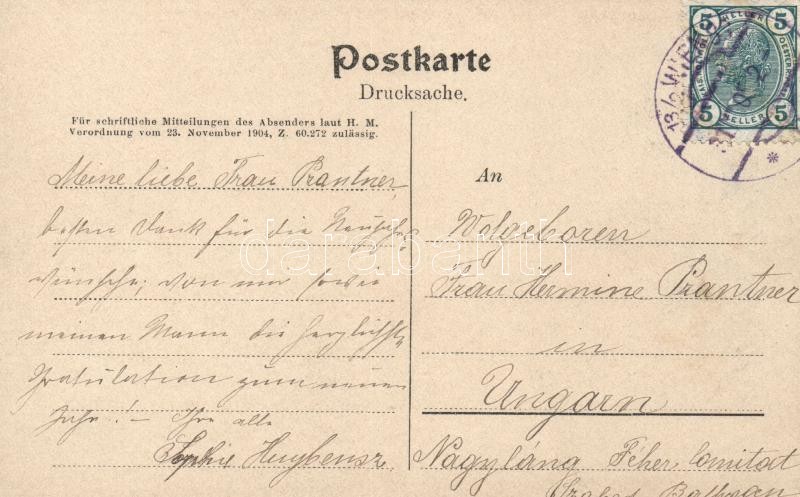 Postkarte
Drucksache.
Für schriftliche Mitteilungen des Absenders laut H. M.
Verordnung vom 23. November 1904, Z. 60.272 zulässig.
Meine liebe Frau Prantner,
besten Dank für die Neujahrs
wünsche, von mir sowie
meinen Mann die herzlichste
Gratulation zum neuen
Jahr! – Ihre alte
Sophie Huybensz
An
Wolgeboren
Frau Hermine Prantner
in
Ungarn
Nagyláng Féher Comitat
5 HELLER 5
5 HELLER 5
13/6 WIEN
darabanth